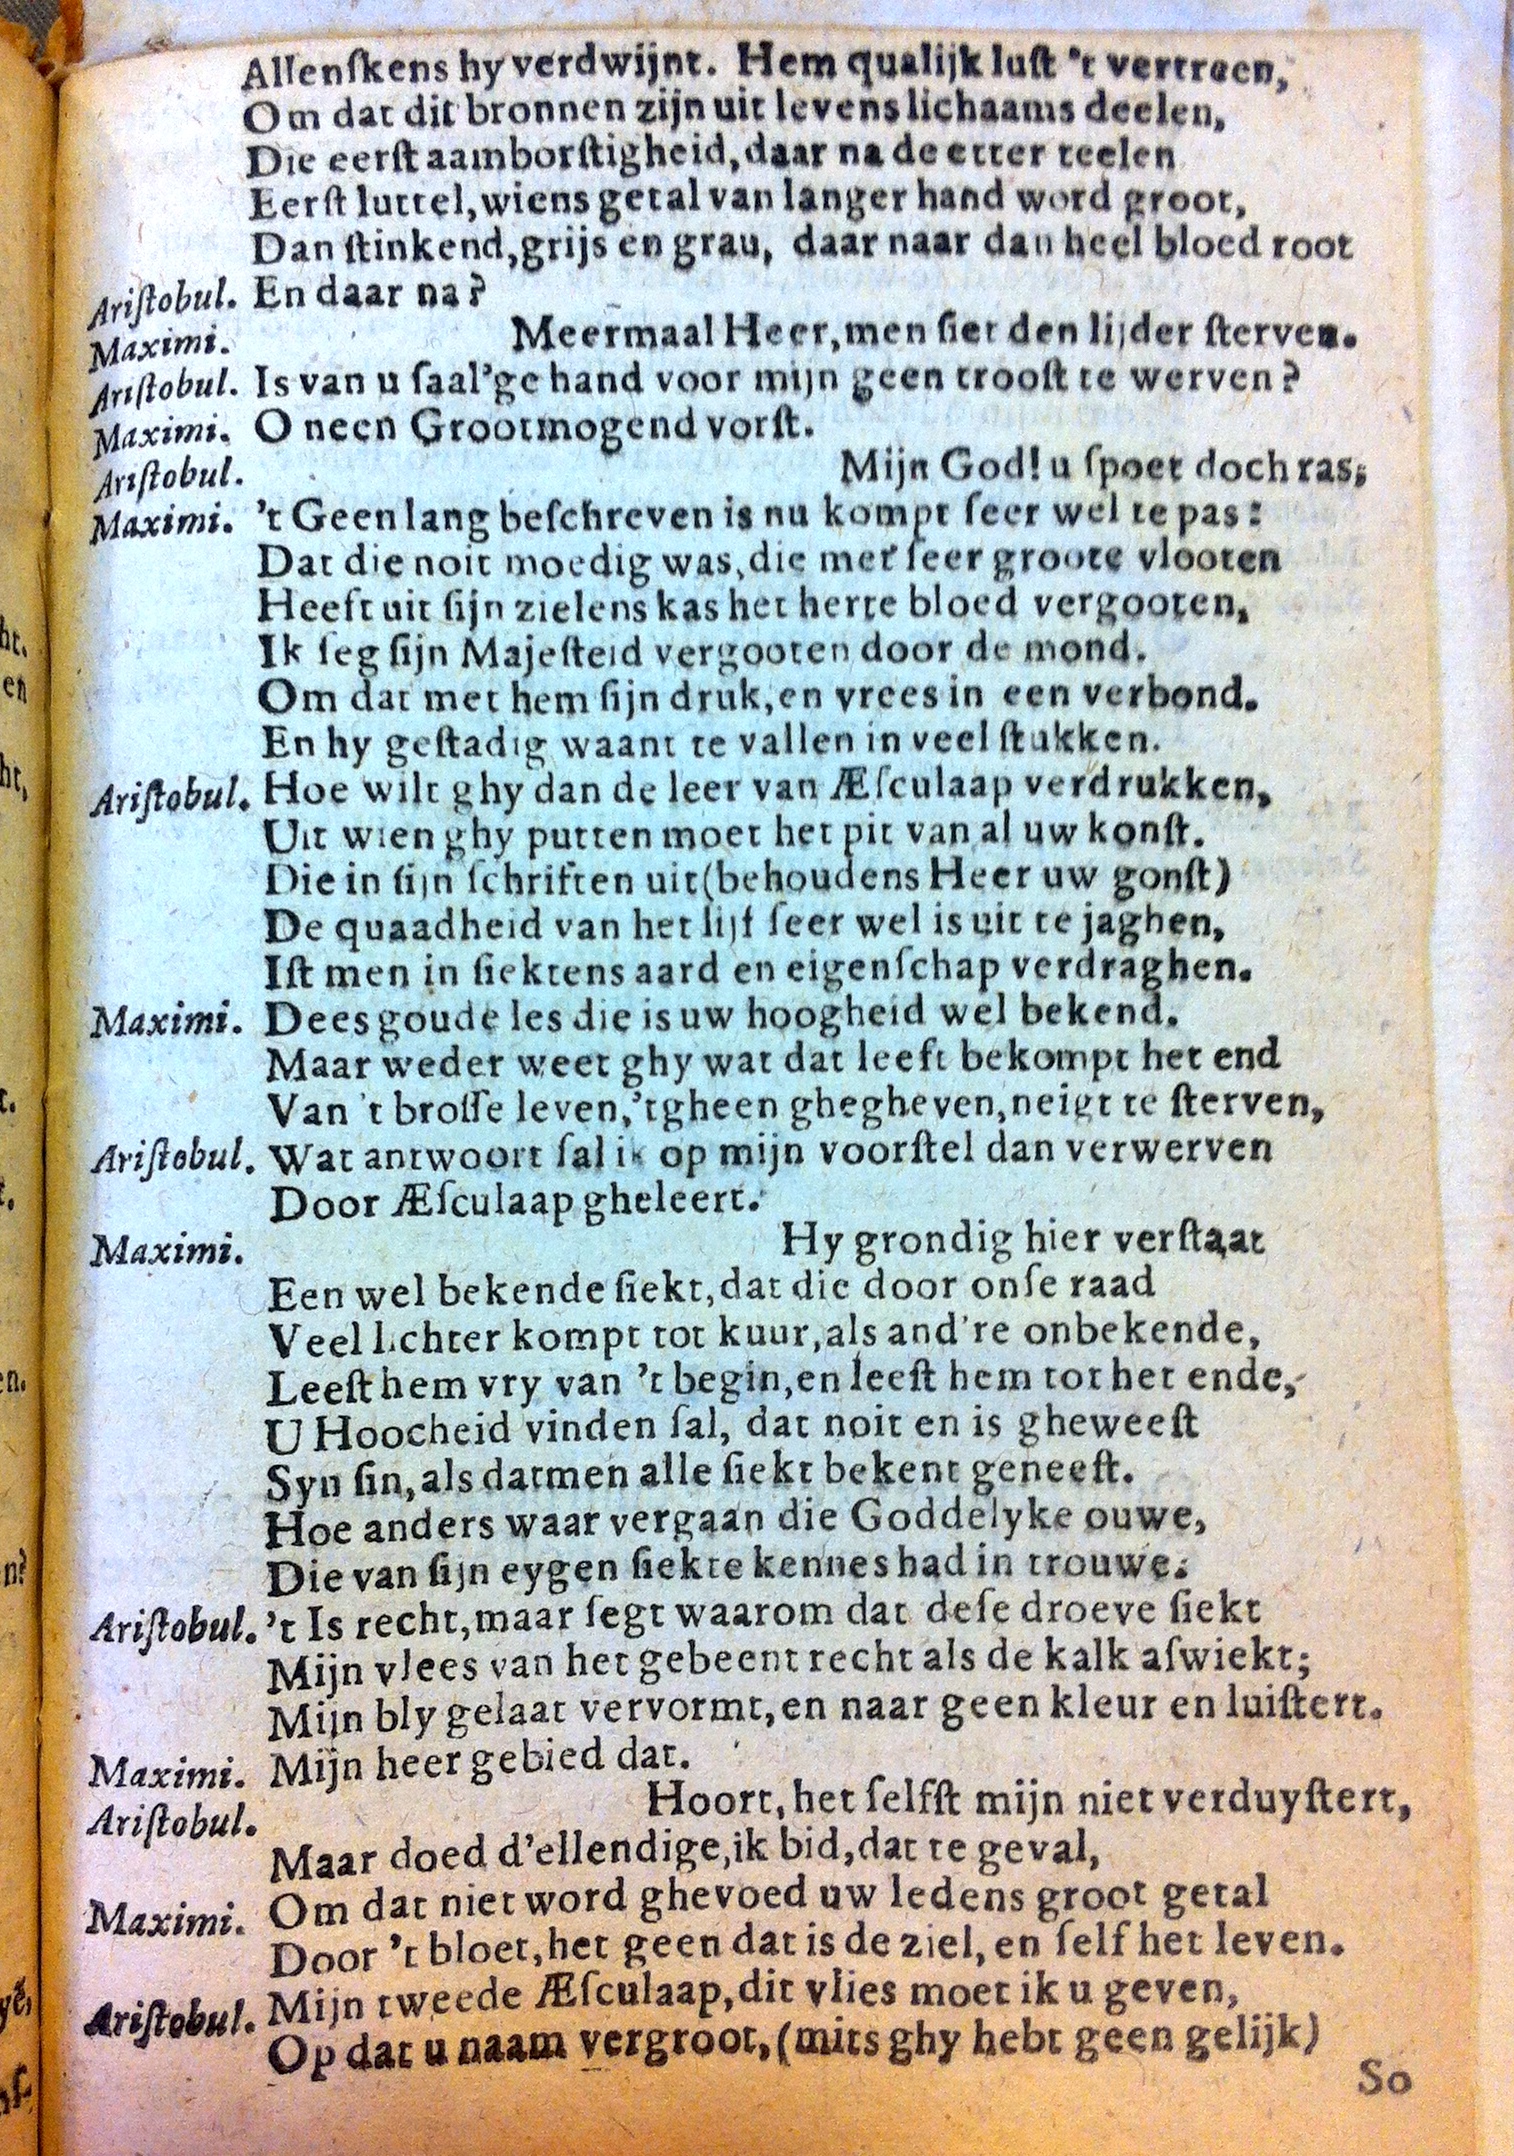 Allenſkens hy verdwijnt. Hem qualijk luſt 't vertreen,
Om dat dit bronnen zijn uit levens lichaams deelen,
Die eerſt aamborſtigheid, daar na de etter teelen
Eerſt luttel, wiens getal van langer hand word groot,
Dan ſtinkend, grijs en grau, daar naar dan heel bloed root
Ariſtobul. En daar na?
Maximi. Meermaal Heer, men ſiet den lijder ſterven.
Ariſtobul. Is van u ſaal'ge hand voor mijn geen trooſt te werven?
Maximi. O neen Grootmogend vorſt.
Ariſtobul. Mijn God! u ſpoet doch ras,
Maximi. 't Geen lang beſchreven is nu kompt ſeer wel te pas:
Dat die noit moedig was, die met ſeer groote vlooten
Heeft uit ſijn zielens kas het herte bloed vergooten,
Ik ſeg ſijn Majeſteid vergooten door de mond.
Om dat met hem ſijn druk, en vrees in een verbond.
En hy geſtadig waant te vallen in veel ſtukken.
Ariſtobul. Hoe wilt ghy dan de leer van Æſculaap verdrukken,
Uit wien ghy putten moet het pit van al uw konſt.
Die in ſijn ſchriften uit (behoudens Heer uw gonſt)
De quaadheid van het lijf ſeer wel is uit te jaghen,
Iſt men in ſiektens aard en eigenſchap verdraghen.
Maximi. Dees goude les die is uw hoogheid wel bekend.
Maar weder weet ghy wat dat leeft bekompt het end
Van 't broſſe leven, 'tgheen ghegheven, neigt te ſterven,
Ariſtobul. Wat antwoort ſal ik op mijn voorſtel dan verwerven
Door Æſculaap gheleert.
Maximi. Hy grondig hier verſtaat
Een wel bekende ſiekt, dat die door onſe raad
Veel lichter kompt tot kuur, als and're onbekende,
Leeſt hem vry van 't begin, en leeſt hem tot het ende,
U Hoocheid vinden ſal, dat noit en is gheweeſt
Syn ſin, als datmen alle ſiekt bekent geneeſt.
Hoe anders waar vergaan die Goddelyke ouwe,
Die van ſijn eygen ſiekte kennes had in trouwe.
Ariſtobul. 't Is recht, maar ſegt waarom dat deſe droeve ſiekt
Mijn vlees van het gebeent recht als de kalk afwiekt;
Mijn bly gelaat vervormt, en naar geen kleur en luiſtert.
Maximi. Mijn heer gebied dat.
Ariſtobul. Hoort, het ſelfſt mijn niet verduyſtert,
Maar doed d'ellendige, ik bid, dat te geval,
Maximi. Om dat niet word ghevoed uw ledens groot getal
Door 't bloet, het geen dat is de ziel, en ſelf het leven.
Ariſtobul. Mijn tweede Æſculaap, dit vlies moet ik u geven,
Op dat u naam vergroot, (mits ghy hebt geen gelijk)
So